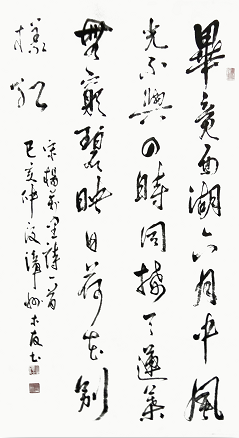 畢竟西湖六月中風
光不與四時同接天蓮葉
無窮碧映日荷花別
樣紅
宋楊萬里詩一首
己亥仲夏漳州木友书